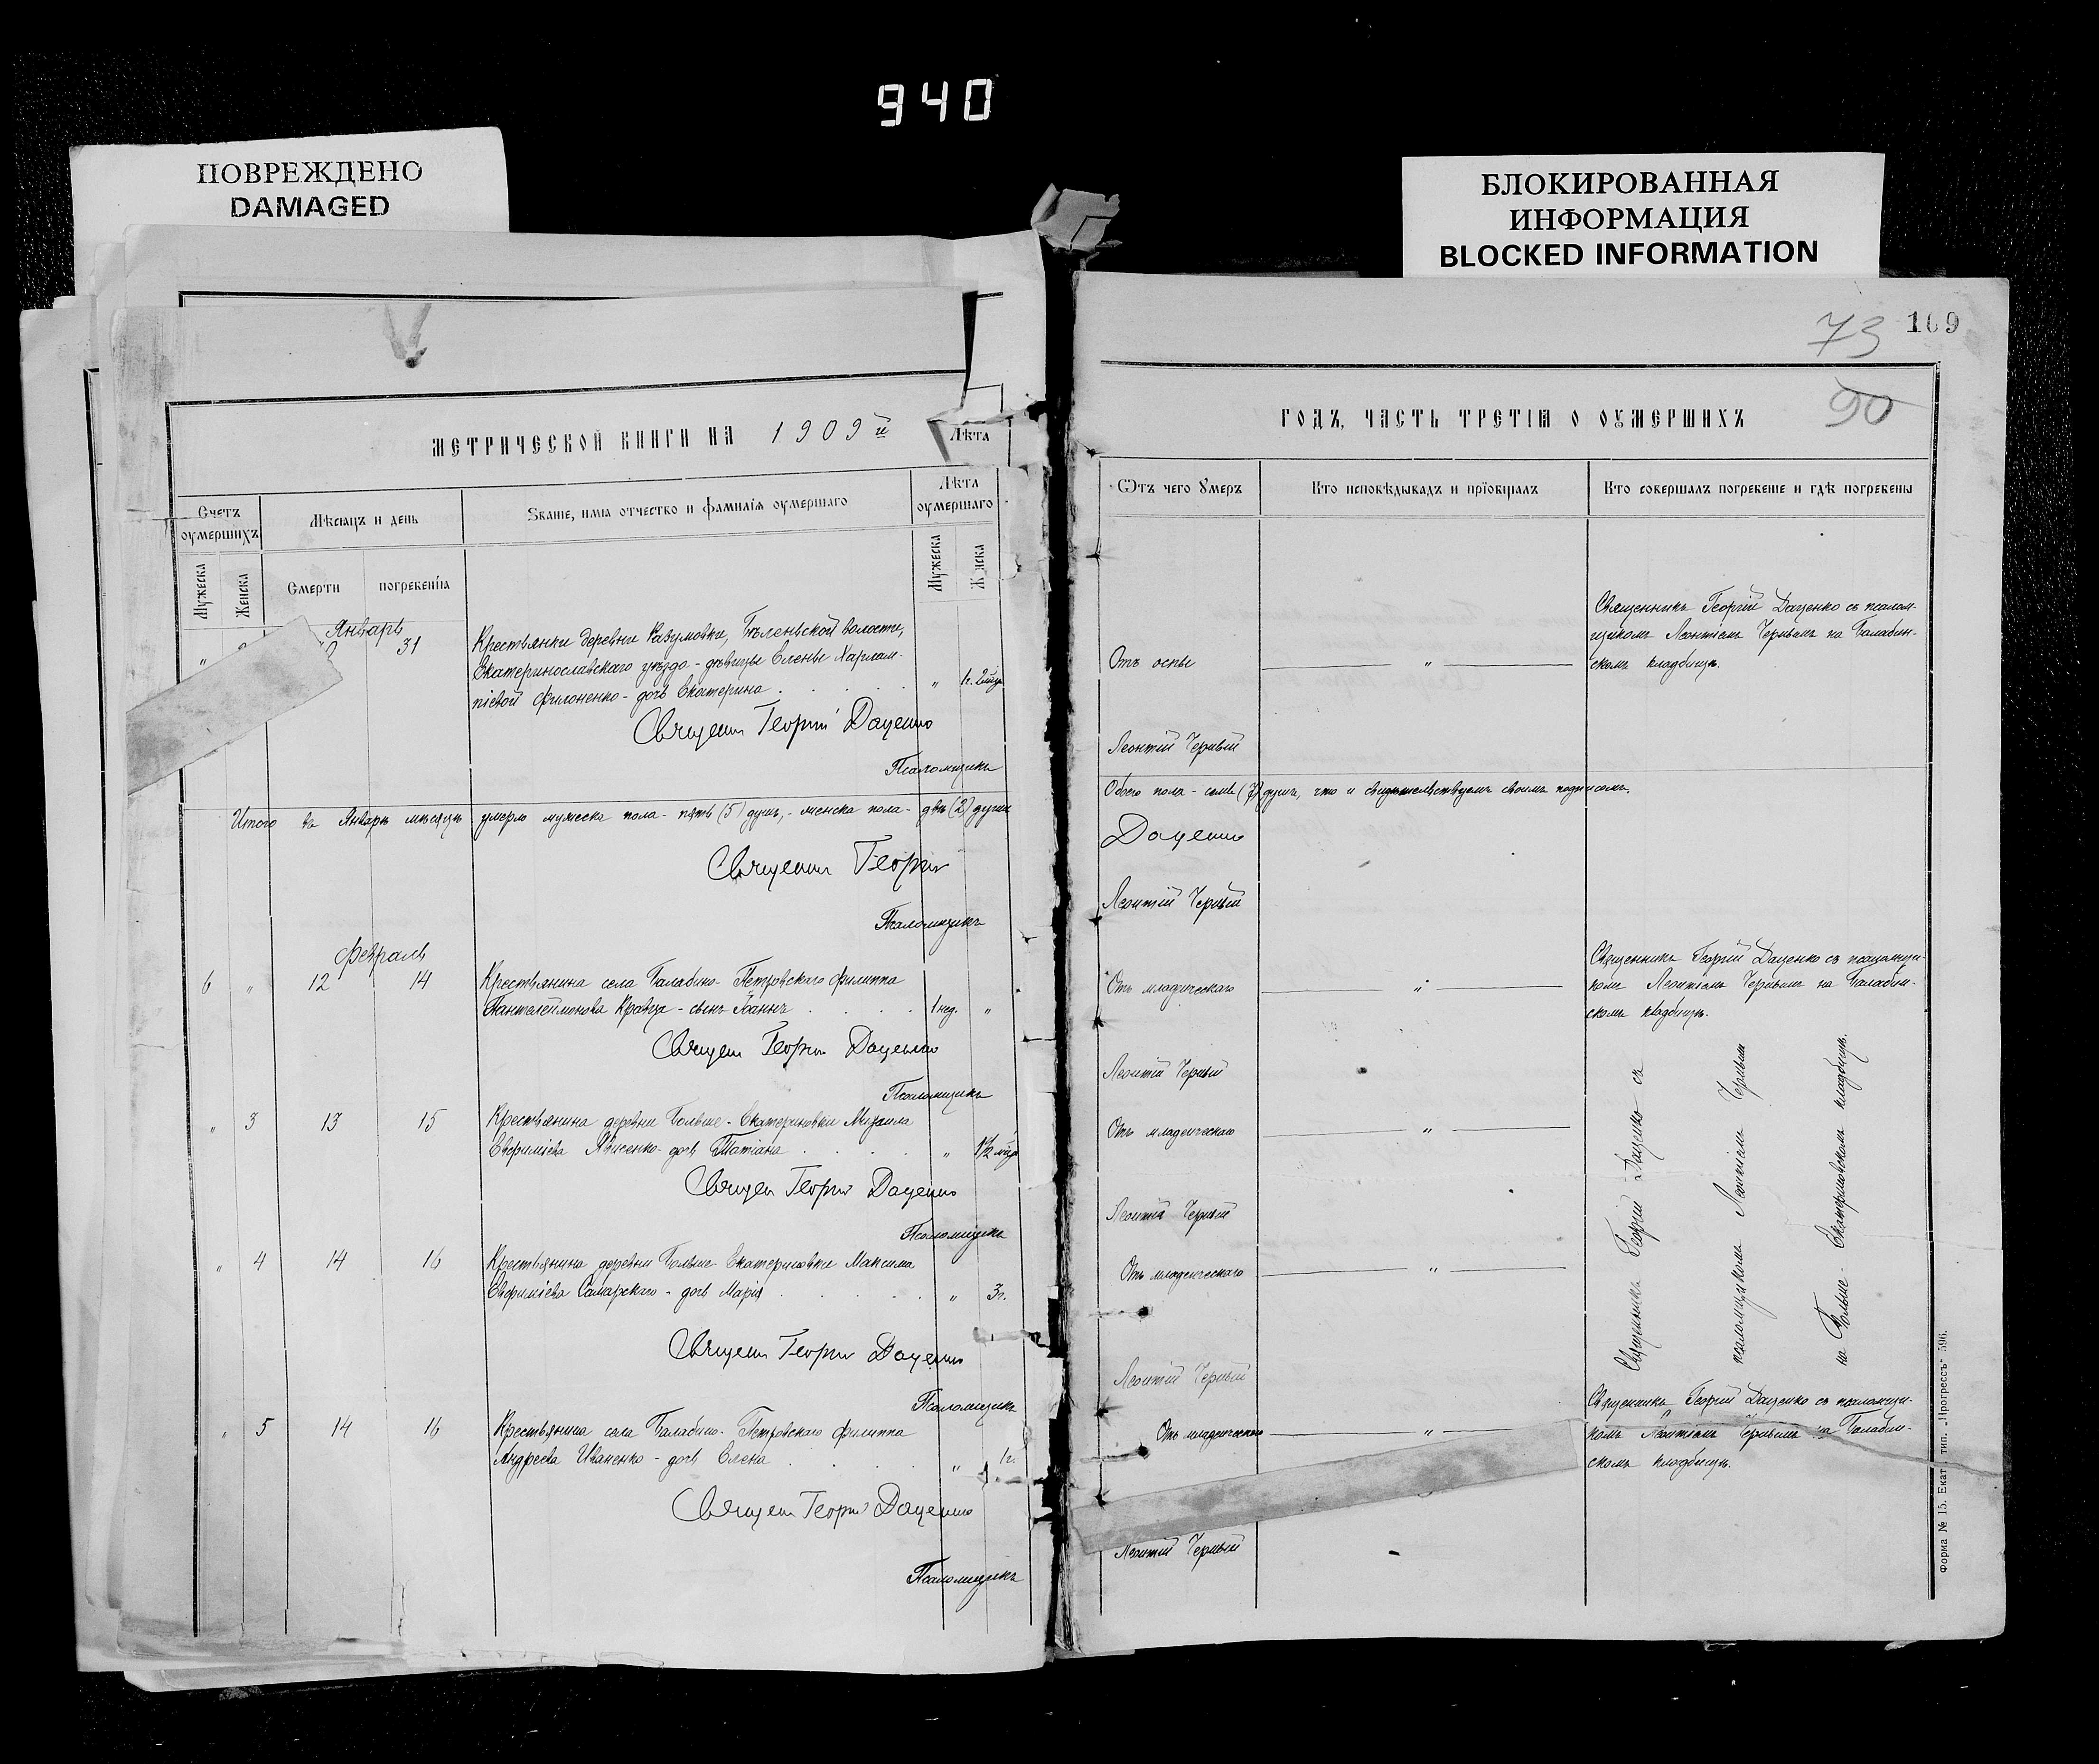 940
ПОВРЕЖДЕНО
DAMAGED
БЛОКИРОВАННАЯ
ИНФОРМАЦИЯ
BLOCKED INFORMATION
73 109
90
МЕТРИЧЕСКОЙ КНИГИ НА 1909й
Лѣта
ГОДЪ, ЧАСТЬ ТРЕТІЯ О ОУМЕРШИХЪ
Счетъ оумершихъ
Мѣсяцъ и день
Званіе, имя отчество и фамилія оумершаго
Лѣта оумершаго
Мужеска
Женска
Смерти
погребенія
Мужеска
Ж нска
Ѿтъ чего Умеръ
Кто исповѣдывалъ и пріобщалъ
Кто совершалъ погребеніе и гдѣ погребены
Январь
„ 31
Крестьянки деревни Разумовки, Бѣленьской волости,
Екатеринославскаго уѣзда - дѣвицы Елены Харлам-
піевой Филоненко - дочь Екатерина . . . . „ 1г. 2мѣс.
Священн Георгій Даценко
Псаломщикъ
Отъ оспы
„
Священникъ Георгій Даценко съ псалом-
щикомъ Леонтіемъ Чернымъ на Балабин-
скомъ кладбищѣ.
Леонтій Черный
Итого въ Январѣ мѣсяцѣ умерло мужеска пола - пять (5) душъ, - женска пола - двѣ (2) души
Обоего пола - семь (7) душъ, что и свидѣтельствуемъ своимъ подписомъ.
Священн Георгій
Даценко
Псаломщикъ
Леонтій Черный
Февраль
6 „ 12 14
Крестьянина села Балабино-Петровскаго Филиппа
Пантелеймонова Кравца - сынъ Іоаннъ . . . . 1 нед. „
Священ Георгій Даценко
Псаломщикъ
Отъ младенческаго
„
Священникъ Георгій Даценко съ псаломщи-
комъ Леонтіемъ Чернымъ на Балабин-
скомъ кладбищѣ.
Леонтій Черный
„ 3 13 15
Крестьянина деревни Больше-Екатериновки Михаила
Евфиміева - дочь Татіана . . . . „ 1½ мѣс.
Священ Георгій Даценко
Псаломщикъ
Отъ младенческаго
„
Леонтій Черный
„ 4 14 16
Крестьянина деревни Больше-Екатериновки Максима
Евфиміева Самарскаго - дочь Марія . . . . „ 3г.
Священн Георгій Даценко
Псаломщикъ
Отъ младенческаго
„
Леонтій Черный
Священникъ Георгій Даценко съ
псаломщикомъ Леонтіемъ Чернымъ
на Больше-Екатериновскомъ кладбищѣ.
„ 5 14 16
Крестьянина села Балабино-Петровскаго Филиппа
Андреева Иваненко - дочь Елена . . . . „ 1г.
Священ Георгій Даценко
Псаломщикъ
Отъ младенческаго
„
Священникъ Георгій Даценко съ псаломщи-
комъ Леонтіемъ Чернымъ на Балабин-
скомъ кладбищѣ.
Леонтій Черный
Форма № 15. Екат. тип. „Прогрессъ“ 596.